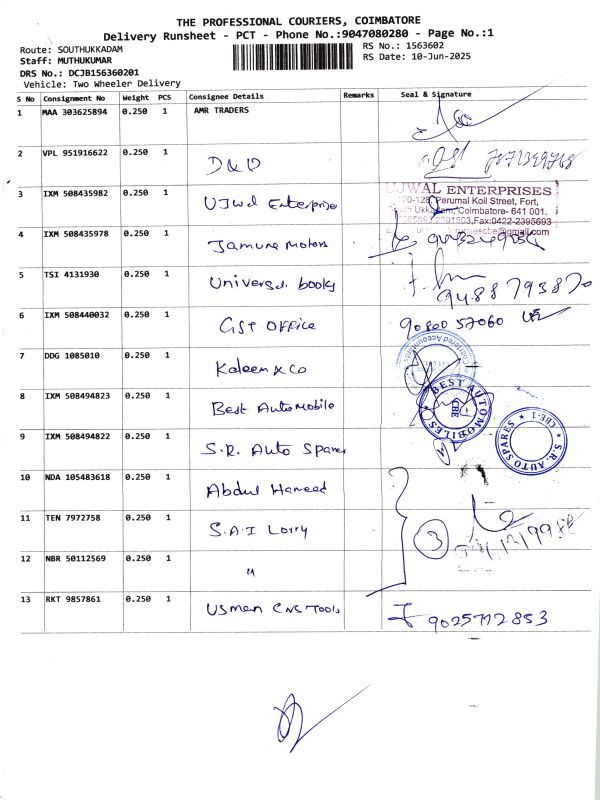 THE PROFESSIONAL COURIERS, COIMBATORE
Delivery Runsheet - PCT - Phone No.:9047080280 - Page No.:1
Route: SOUTHUKKADAM
RS No.: 1563602
Staff: MUTHUKUMAR
RS Date: 10-Jun-2025
DRS No.: DCJB156360201
Vehicle: Two Wheeler Delivery
S No Consignment No Weight PCS Consignee Details Remarks Seal & Signature
1 MAA 303625894 0.250 1 AMR TRADERS
2 VPL 951916622 0.250 1 D&D
3 IXM 508435982 0.250 1 UJwal Enterprise
UJWAL ENTERPRISES
Perumal Koil Street, Fort,
Coimbatore- 641 001.
Fax:0422-2395693
4 IXM 508435978 0.250 1 Jamuna Motors
5 TSI 4131930 0.250 1 Universal books 9488793870
6 IXM 508440032 0.250 1 GST OFFICE 90800 57060
7 DDG 1085010 0.250 1 Kaleem & Co
Chartered Accountants
8 IXM 508494823 0.250 1 Best Automobile
BEST AUTOMOBILES
CBE
9 IXM 508494822 0.250 1 S.R. Auto Spares
S.R. AUTO SPARES
CBE-1
10 NDA 105483618 0.250 1 Abdul Hameed
11 TEN 7972758 0.250 1 S.A.I Lorry
3
12 NBR 50112569 0.250 1 "
13 RKT 9857861 0.250 1 Usman CNS Tools 9025772853